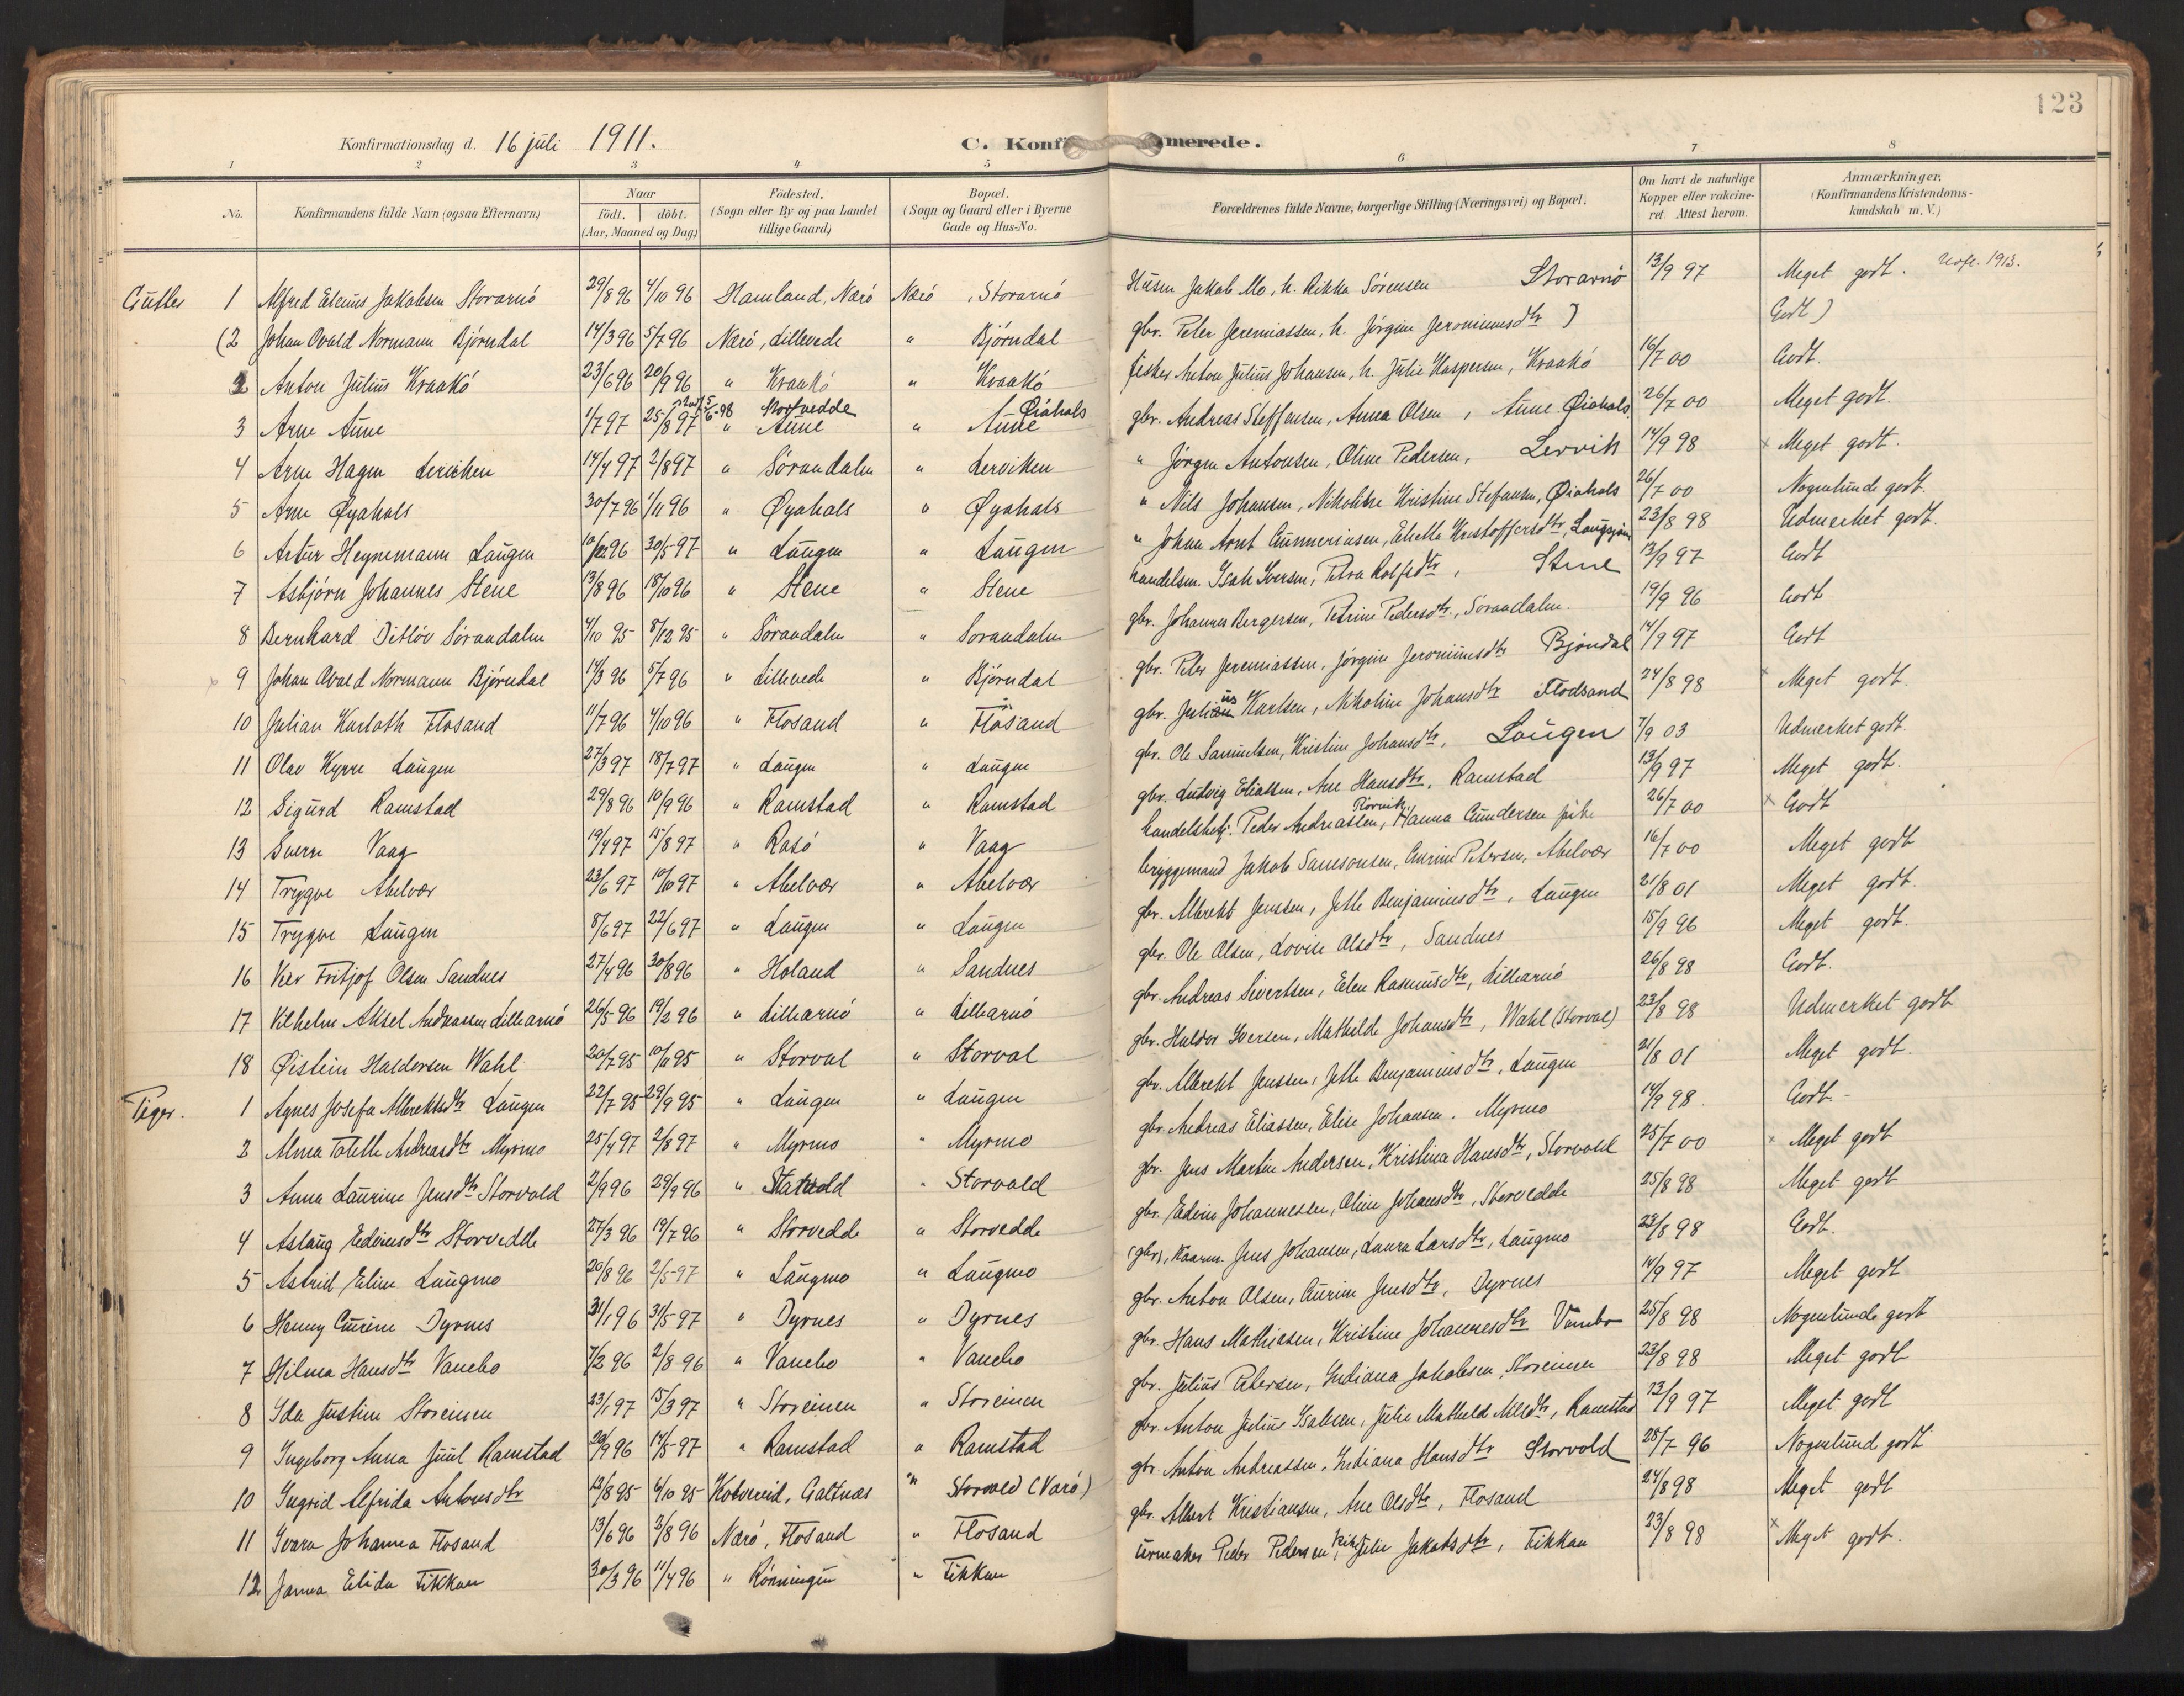 123
Konfirmationsdag d. 16 juli 1911.
C. Konf merede.
1 2 3 4 5 6 7 8
No.
Konfirmandens fulde Navn (ogsaa Efternavn)
Naar
födt. | döbt.
(Aar, Maaned og Dag)
Födested.
(Sogn eller By og paa Landet
tillige Gaard)
Bopæl.
(Sogn og Gaard eller i Byerne
Gade og Hus-No.
Forældrenes fulde Navne, borgerlige Stilling (Næringsvei) og Bopæl.
Om havt de naturlige
Kopper eller vakcine-
ret. Attest herom.
Anmærkninger.
(Konfirmandens Kristendoms-
kundskab m. V.)
Gutter 1 Alfred Jakobsen Storarnö 29/8 96 4/10 96 Hamland, Nærö Nærö, Storarnö Husm Jakob Mo, h. Rikka Sörensen Storarnö 13/9 97 Meget godt. 1913.
(2 Johan Ovald Normann Bjørndal 14/3 96 5/7 96 Nærö, Lillevede " Bjørndal gbr. Peter Jeremiassen, h. Jörgine Jeronimusdtr ) Godt)
2 Anton Julius Kraakö 23/6 96 20/9 96 " Kraakö " Kraakö fisker Anton Julius Johansen, h. Julie Kaspersen, Kraakö 16/7 00 Godt
3 Arne Aune 1/7 97 25/8 97 " Storvedde Aune " Aune Øiahals gbr. Andreas Steffensen, Anna Olsen, Aune Øiahals. 26/7 00 Meget godt.
4 Arne Hagen Lerviken 14/4 97 2/8 97 " Sörandalen " Lerviken " Jörgen Antonsen, Oline Pedersen, Lervik 14/9 98 x Meget godt.
5 Arne Øyahals 30/7 96 1/11 96 " Øyahals " Øyahals " Nils Johansen, Nikoline Kristine Stefansen, Øiahals 26/7 00 Nogenlunde godt.
6 Artur Heynemann Laugen 10/12 96 30/5 97 " Laugen " Laugen " Johan Arnt Gunneriusen, Kristoffersdtr, 23/8 98 Udmerket godt.
7 Asbjörn Johannes Stene 13/8 96 18/10 96 " Stene " Stene handelsm. Isak Iversen, Petra Rolfsdtr, Stene 13/9 97 Godt
8 Bernhard Ditlöv Sörandalen 4/10 95 8/12 95 " Sörandalen " Sorandalen gbr. Johannes Bergersen, Petrine Pedersdtr, Sörandalen. 19/9 96 Godt
x 9 Johan Ovald Normann Bjørndal 14/3 96 5/7 96 " Lillevede " Bjørndal gbr. Peter Jeremiassen, Jörgine Jeronimusdtr Bjöndal 14/9 97 Godt
10 Julian Karloth Flosand 11/7 96 4/10 96 " Flosand " Flosand gbr. Julius Karlsen, Nikoline Johansdtr Flodsand 24/8 98 x Meget godt.
11 Olav Kyrre Laugen 27/3 97 18/7 97 " Laugen " Laugen gbr. Ole Samuelsen, Kristine Johansdtr, Laugen 7/9 03 Udmerket godt.
12 Sigurd Ramstad 29/8 96 10/9 96 " Ramstad " Ramstad gbr. Ludvig Eliassen, Ane Hansdtr, Ramstad 13/9 97 Meget godt.
13 Sverre Vaag 19/4 97 15/8 97 " Rasö " Vaag handelsbetj. Peder Andreassen, Hanna Gundersen 26/7 00 x Godt
14 Trygve Abelvær 23/6 97 10/10 97 " Abelvær " Abelvær bryggemand Jakob Samsonsen, Gurine Petersen, Abelvær 16/7 00 Meget godt
15 Trygve Laugen 8/6 97 22/6 97 " Laugen " Laugen gbr. Albrekt Jenssen, Jette Benjaminsdtr, Laugen 21/8 01 Meget godt.
16 Fritjof Olsen Sandnes 27/4 96 30/8 96 " Holand " Sandnes gbr. Ole Olsen, Lovise Olsdtr, Sandnes 15/9 96 Meget godt.
17 Vilhelm Aksel Andreassen Lillearnö 26/5 96 19/2 96 " Lillearnö " Lillearnö gbr. Andreas Sivertsen, Elen Rasmusdtr, Lillearnö 26/8 98 Godt.
18 Øistein Haldorsen Wahl 20/7 95 10/11 95 " Storval " Storval gbr. Haldor Iversen, Mathilde Johansdtr, Wahl (Storval) 23/8 98 Udmerket godt
Piger. 1 Agnes Josefa Albrektsdtr Laugen 22/7 95 29/9 95 " Laugen " Laugen gbr. Albrekt Jenssen, Jette Benjaminsdtr, Laugen 21/8 01 Meget godt.
2 Alma Andreasdtr Myrmo 25/4 97 2/8 97 " Myrmo " Myrmo gbr. Andreas Eliassen, Elise Johansen. Myrmo 14/9 98. Godt.
3 Anna Laurine Jensdtr Storvold 2/9 96 29/9 96 " " Storvald gbr. Jens Martin Andersen, Kristina Hansdtr, Storvold 25/7 00 x Meget godt
4 Aslaug Edvinsdtr Storvedde 27/3 96 19/7 96 " Storvedde " Storvedde gbr. Edvin Johannessen, Oline Johansdtr, Storvedde 25/8 98 Meget godt
5 Astrid Eline Laugmo 20/8 96 2/5 97 " Laugmo " Laugmo (gbr), Jens Johansen, Laura Larsdtr, Laugmo 23/8 98 Godt.
6 Henny Gurine Dyrnes 31/1 96 31/5 97 " Dyrnes " Dyrnes gbr. Anton Olsen, Gurine Jensdtr, Dyrnes 14/9 97 Meget godt
7 Hilma Hansdtr Vanebo 7/2 96 2/8 96 " Vanebo " Vanebo gbr. Hans Mathiasen, Kristine Johannesdtr 25/8 98 Nogenlunde godt
8 Ida Justine Storeinen 23/1 97 15/3 97 " Storeinen " Storeinen gbr. Julius Petersen, Indiana Jakobsen, Storeinen 23/8 98 Meget godt
9 Ingeborg Anna Juul Ramstad 20/9 96 17/5 97 " Ramstad " Ramstad gbr. Anton Julius Isaksen, Julie Mathilde Nilsdtr, Ramstad 13/9 97 Meget godt
10 Ingrid Alfrida Antonsdtr 12/8 95 6/10 95 Kolvereid, Galtnæs " Storvold (Varö) gbr. Anton Andreassen, Indiana Hansdtr Storvold 28/7 96 Nogenlund godt
11 Ivara Johanna Flosand 13/6 96 2/8 96 Nærö, Flosand " Flosand gbr. Albert Kristiansen, Ane Olsdtr, Flosand 24/8 98 Meget godt
12 Janna Elida Fikkan 30/3 96 11/4 96 " Rönningen " Fikkan urmaker Peder Pedersen, Julie Jakobsdtr, Fikkan 23/8 98 x Meget godt.